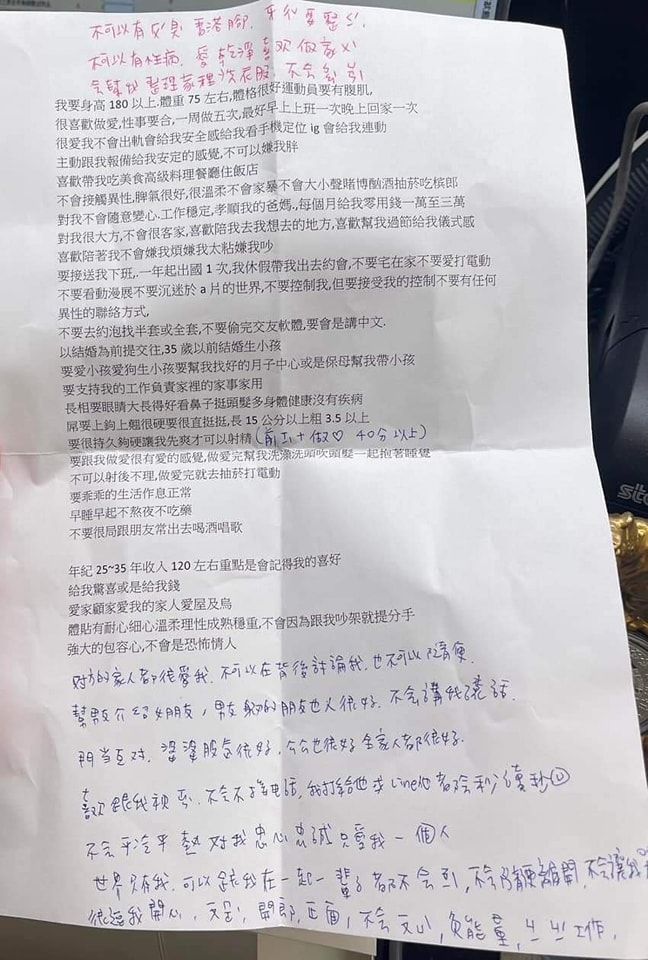 不可以有皮臭 香港腳. 牙very要整ㄘˊ.
不可以有性病. 愛乾淨喜欢做家ㄕˋ
会幫我整理家裡洗衣服. 不会劈
我要身高 180 以上.體重 75 左右,體格很好運動員要有腹肌,
很喜歡做愛,性事要合,一周做五次,最好早上上班一次晚上回家一次
很愛我不會出軌會給我安全感給我看手機定位 ig 會給我連動
主動跟我報備給我安定的感覺,不可以嫌我胖
喜歡帶我吃美食高級料理餐廳住飯店
不會接觸異性,脾氣很好,很溫柔不會家暴不會大小聲賭博酗酒抽菸吃檳郎
對我不會隨意變心.工作穩定,孝順我的爸媽,,每個月給我零用錢一萬至三萬
對我很大方,不會很客家,喜歡陪我去我想去的地方,喜歡幫我過節給我儀式感
喜歡陪著我不會嫌我煩嫌我太粘嫌我吵
要接送我下班,.一年起出國 1 次,我休假帶我出去約會,不要宅在家不要愛打電動
不要看動漫展不要沉迷於 a 片的世界,不要控制我,但要接受我的控制不要有任何
異性的聯絡方式,
不要去約泡找半套或全套,不要偷完交友軟體,要會是講中文.
以結婚為前提交往,35 歲以前結婚生小孩
要愛小孩愛狗生小孩要幫我找好的月子中心或是保母幫我帶小孩
要支持我的工作負責家裡的家事家用
長相要眼睛大長得好看鼻子挺頭髮多身體健康沒有疾病
屌要上鉤上翹很硬要很直挺挺,長 15 公分以上粗 3.5 以上
要很持久夠硬讓我先爽才可以射精(前ㄒㄧ+做♡ 40分以上)
要跟我做愛很有愛的感覺,做愛完幫我洗澡洗頭吹頭髮一起抱著睡覺
不可以射後不理,做愛完就去抽菸打電動
要乖乖的生活作息正常
早睡早起不熬夜不吃藥
不要很局跟朋友常出去喝酒唱歌
年紀 25~35 年收入 120 左右重點是會記得我的喜好
給我驚喜或是給我錢
愛家顧家愛我的家人愛屋及烏
體貼有耐心細心溫柔理性成熟穩重,不會因為跟我吵架就提分手
強大的包容心,不會是恐怖情人
对方的家人都很愛我. 不可以在背後討論我. 也不可以隨便
幫男友介紹女朋友, 男友身边的朋友也人很好. 不会講我壞話.
門当互对. 婆婆脾氣很好. 公公也很好 全家人都很好.
喜欢跟我視訊. 不会不接电話, 我打給他或Line他都会秒讀秒
不会乎冷乎熱 对我忠心忠誠只愛我一個人
世界只有我. 可以跟我在一起一輩子都不会, 不会隨便離開, 不会讓我
很逗我開心, 開朗, 正面, 不会, 負能量, 工作.